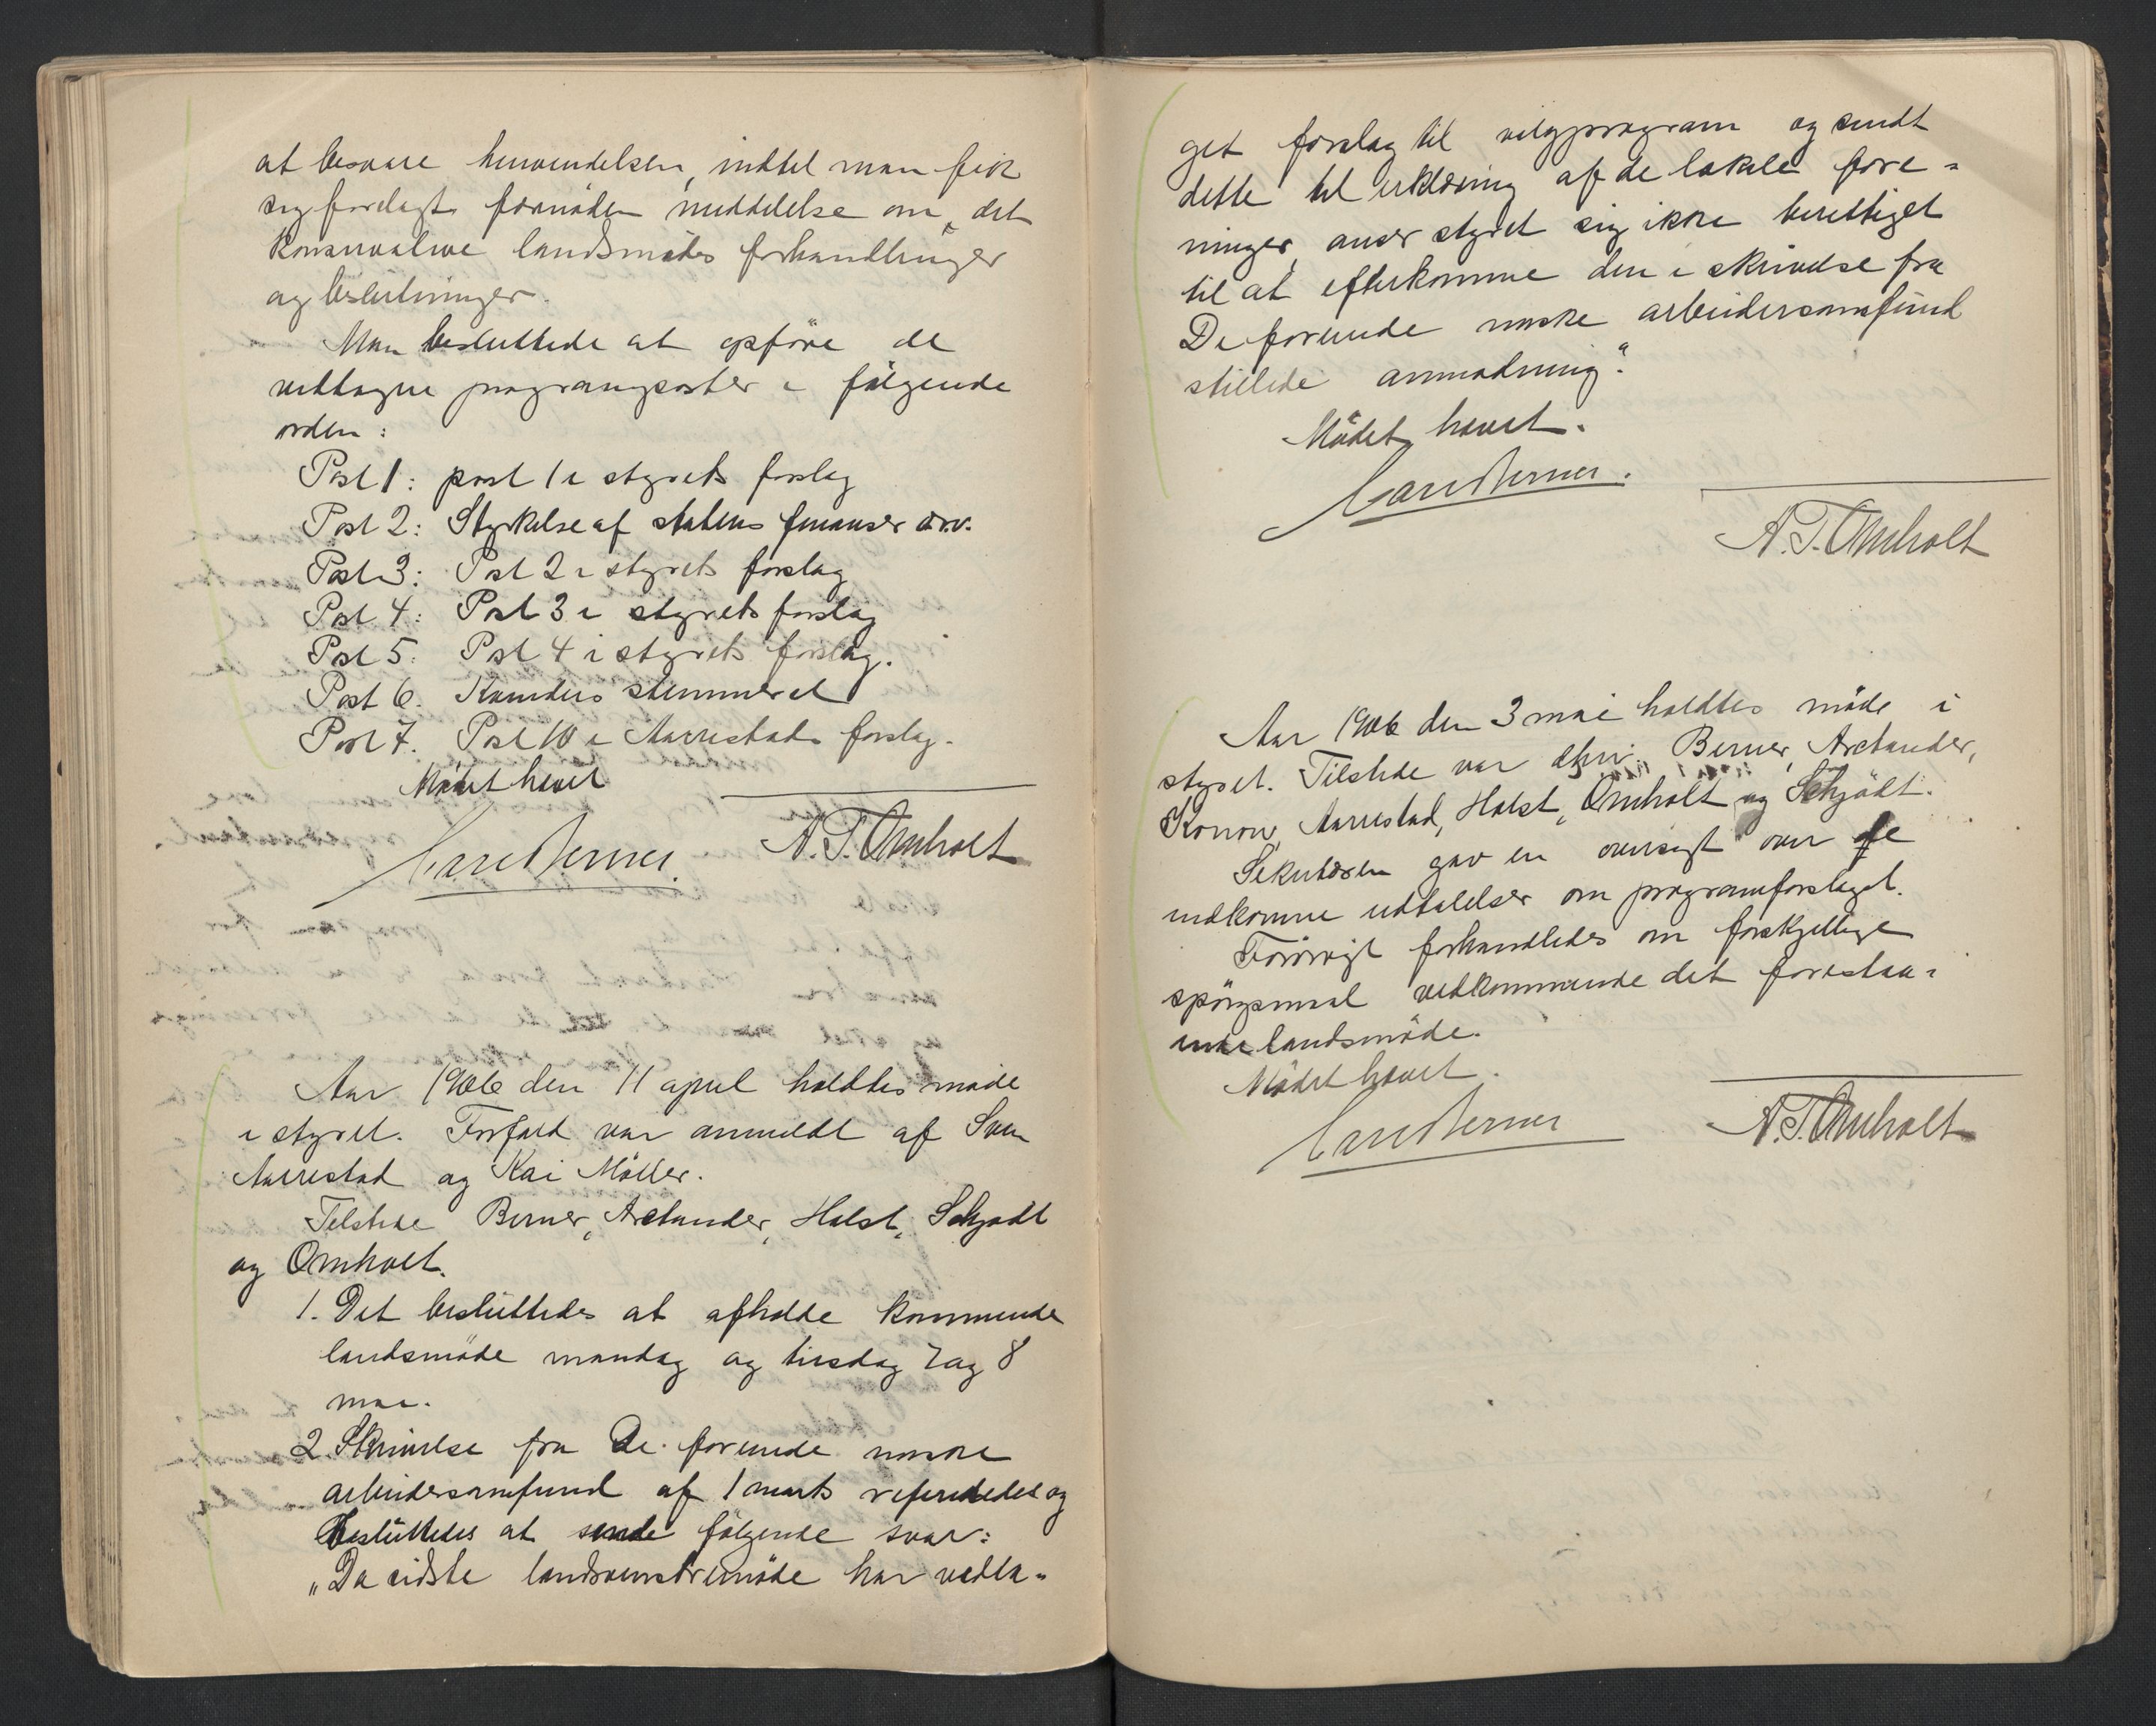 at besvare henvendelsen, indtil man fik
sig forelagt fornöden meddelelse om det
konservative landsmödes forhandlinger
og beslutninger.
Man besluttede at opföre de
vedtagne programposter i fölgende
orden:
Post 1: post 1 i styrets forslag
Post 2: Styrkelse af statens finanser osv.
Post 3: Post 2 i styrets forslag
Post 4: Post 3 i styrets forslag
Post 5: Post 4 i styrets forslag.
Post 6. Kvinders stemmeret
Post 7. Post 10 i Aarrestads forslag.
Mödet hævet
Carl Berner. A. T. Omholt
Aar 1906 den 11 april holdtes möde
i styret. Forfald var anmeldt af Sven
Aarrestad og Kai Möller.
Tilstede Berner, Arctander, Holst, Schjödt
og Omholt.
1. Det besluttedes at afholde kommende
landsmöde mandag og tirsdag 7 og 8
mai.
2 Skrivelse fra De forenede norske
arbeidersamfund af 1 marts refereredes og
besluttedes at sende fölgende svar:
„Da sidste landsvenstremöde har vedta-
get forslag til valgprogram og sendt
dette til erklæring af de lokale fore-
ninger, anser styret sig ikke berettiget
til at efterkomme den i skrivelse fra
De forenede norske arbeidersamfund
stillede anmodning".
Mödet hævet.
Carl Berner.
A. T. Omholt
Aar 1906 den 3 mai holdtes möde i
styret. Tilstede var dhrr. Berner, Arctander,
Konow, Aarrestad, Holst, Omholt og Schjödt.
Sekretæren gav en oversigt over de
indkomne udtalelser om programforslaget.
Forövrigt forhandledes om forskjellige
spörgsmaal vedkommende det forestaa-
ende landsmöde.
Mödet hævet.
Carl Berner A. T. Omholt